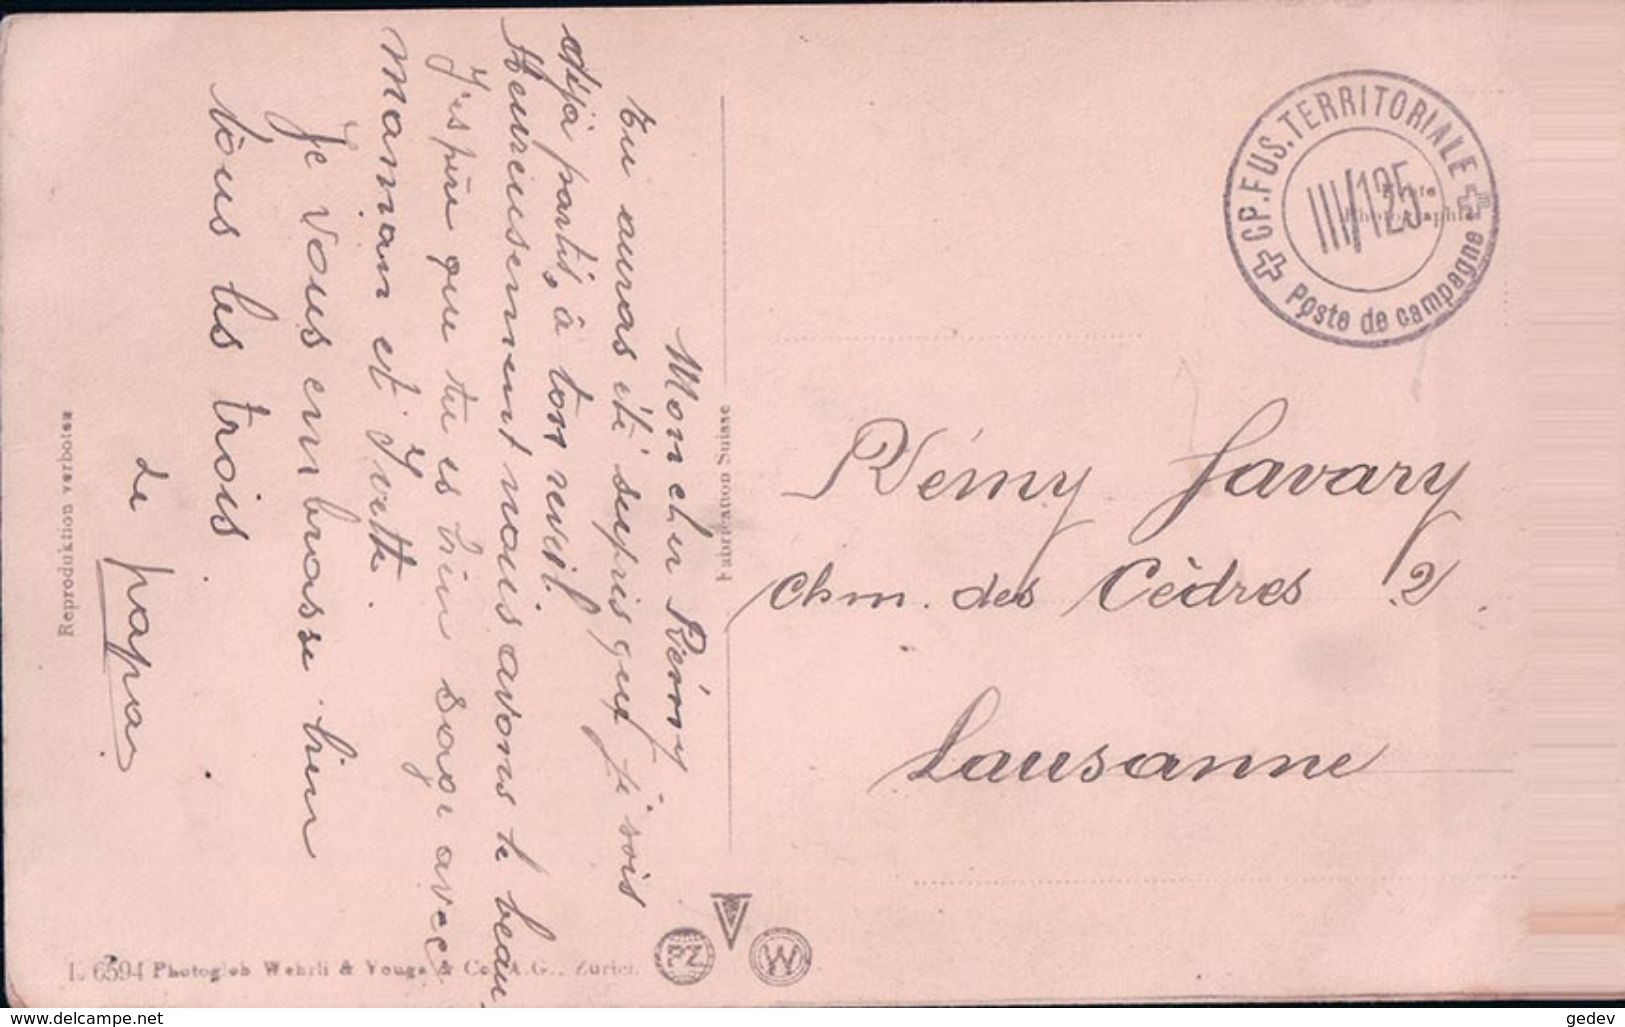 Mon cher Rémy
tu auras été supris que je sois
déjà partis, à ton reveil.
Heureusement nous avons le beau.
J'espère que tu es bien sage avec
maman et Yvette.
Je vous embrasse bien
tous les trois
de papa
Reproduktion verboten
L. 6594 Photoglob Wehrli & Vouga & Co. A.G., Zürich
Fabrication Suisse
PZ
V
W
CP. FUS. TERRITORIALE
III/125
Poste de campagne
Photographie
Rémy Favary
Chm. des Cèdres 2
Lausanne
www.delcampe.net
gedev